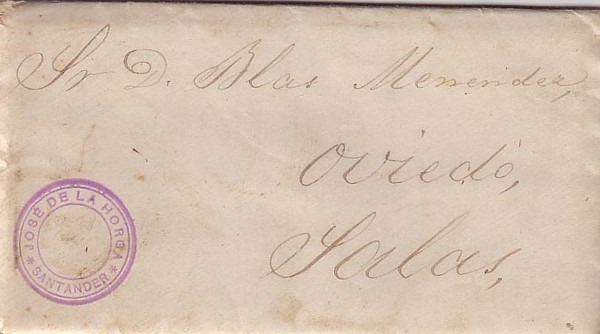 Sr D. Blas Menendez,
Oviedo,
Salas,
JOSÉ DE LA HORGA
* SANTANDER *